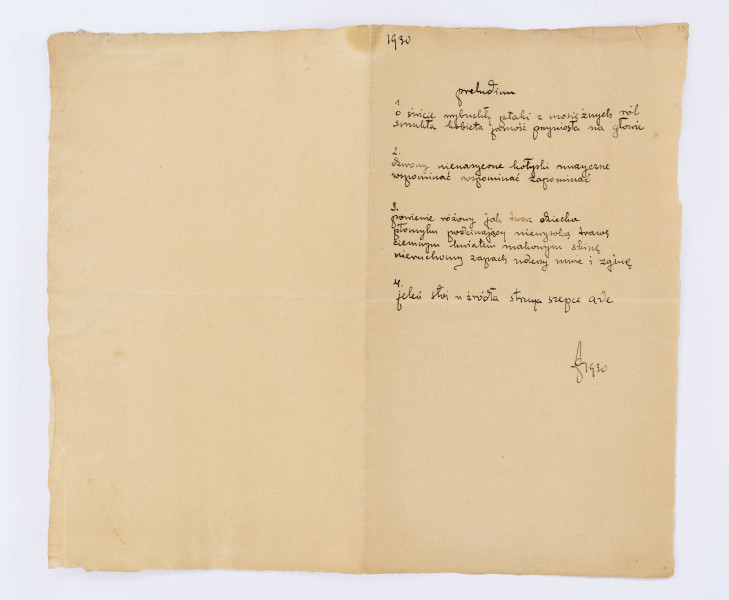 1930
preludium
1.
o świcie wybuchły ptaki z mosiężnych ról
smukła kobieta jasność przyniosła na głowie
2.
dzwony nienasycone kołyski muzyczne
wspominać wspominać zapominać
3.
powiewie różowy jak twarz dziecka
płomyku podcinający niewysoką trawę
ciemnym kwiatem makowym słinę
nieruchomy zapach uderzy mnie i zginę
4.
jeleń stoi u źródła struga szepce ave
1930